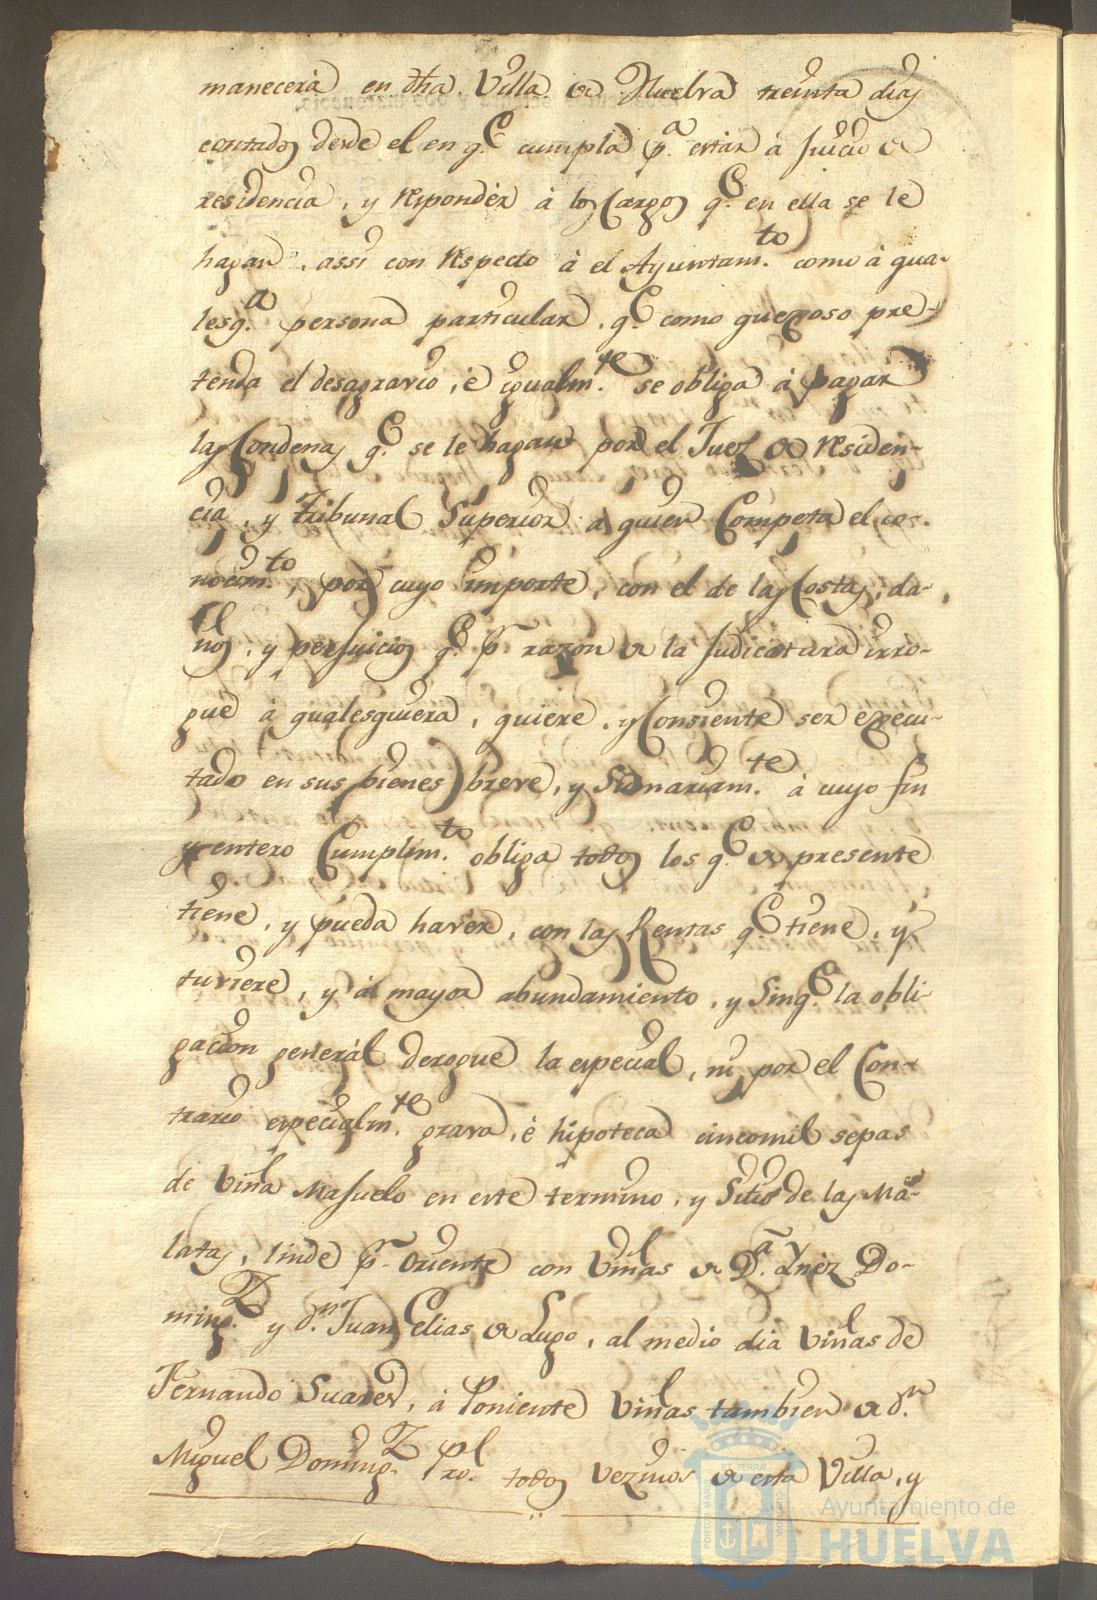 manecerà en dha. Villa de Huelva treinta dias
contados desde el en q.e cumpla p.a estar à Juicio de
residencia, y responder à los Cargos q.e en ella se le
hagan, assi con respecto à el Ayuntam.to como à qua-
lesq.a persona particular, q.e como quexoso pre-
tenda el desagravio, è igualm.te se obliga à pagar
las Condenas q.e se le hagan por el Juez de residen-
cia, y Tribunal Superior à quien Competa el co-
nocim.to, por cuyo importe, con el de las Costas, da-
ños, y perjuicios q.e p.r razon de la Judicatura irro-
gue à qualesquiera, quiere, y Consiente ser execu-
tado en sus bienes breve, y Sumariam.te à cuyo fin
y entero Cumplim.to obliga todos los q.e de presente
tiene, y pueda haver, con las Rentas q.e tiene, y
tuviere, y à mayor abundamiento, y Sin q.e la obli-
gacion general derogue la especial, ni por el Con-
trario especialm.te grava, è hipoteca cincomil sepas
de Viña Masuelo en este termino, y Sitio de las
latas, linde p.r Oriente con Viñas de D.a Ynèz Do-
ming.z y d.n Juan Elias de Lugo, al medio dia Viñas de
Fernando Suarez, à Poniente Viñas tambien de d.n
Miguel Doming.z todos Vezinos de esta Villa, y
Ayuntamiento de
HUELVA